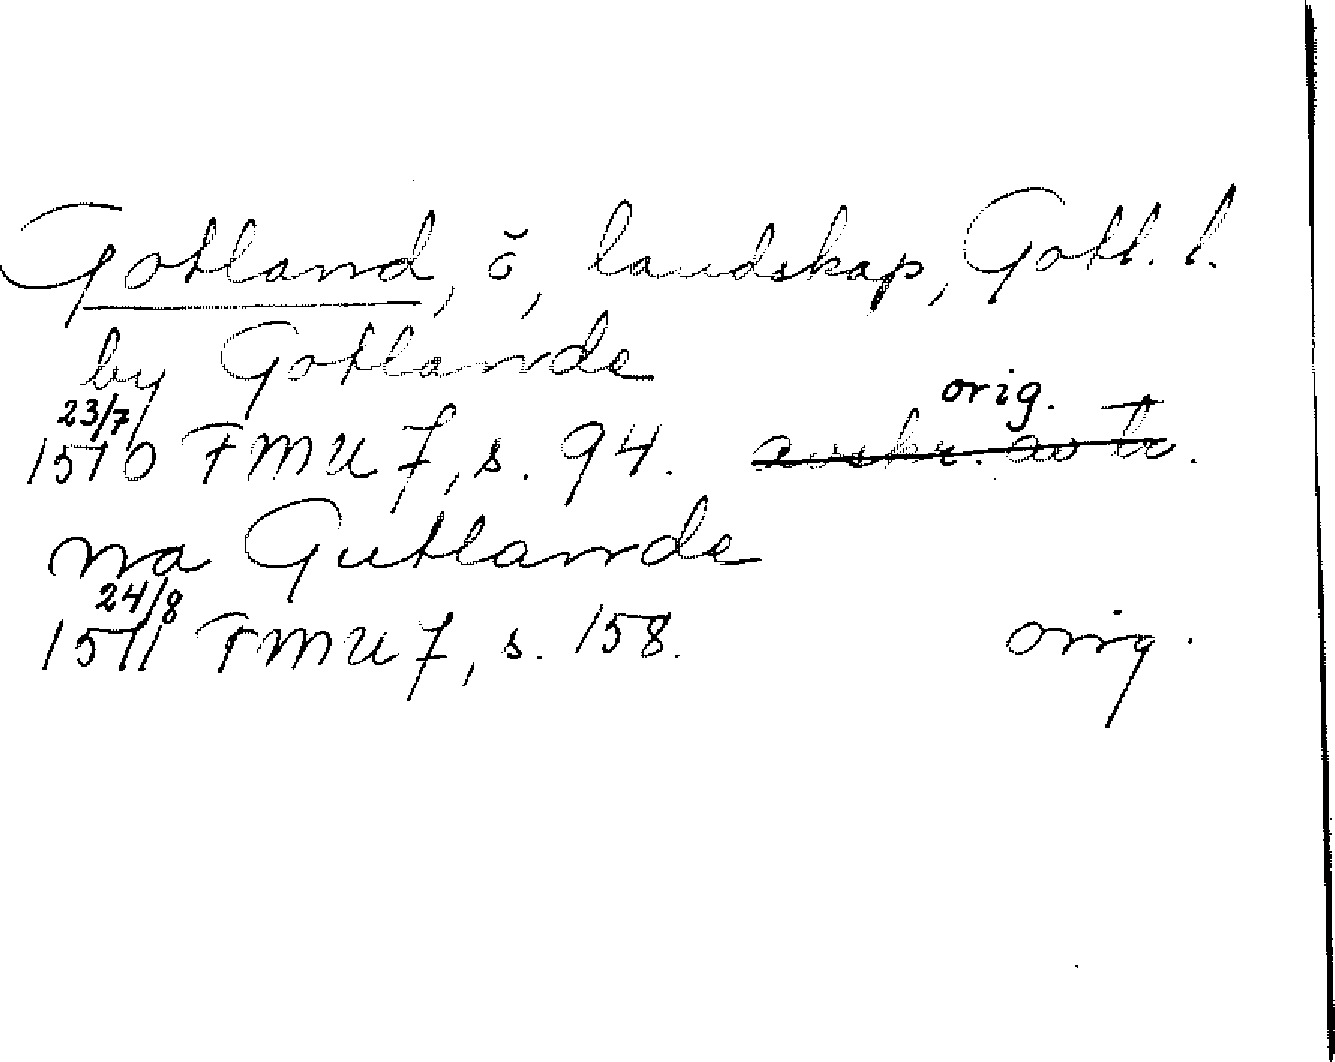 Gotland, ö, landskap, Gotl. l.
by Gotlande
23/7 orig.
1510 FMU 7, s. 94. avskr. av tr.
na Gutlande
24/8
1511 FMU 7, s. 158. orig.